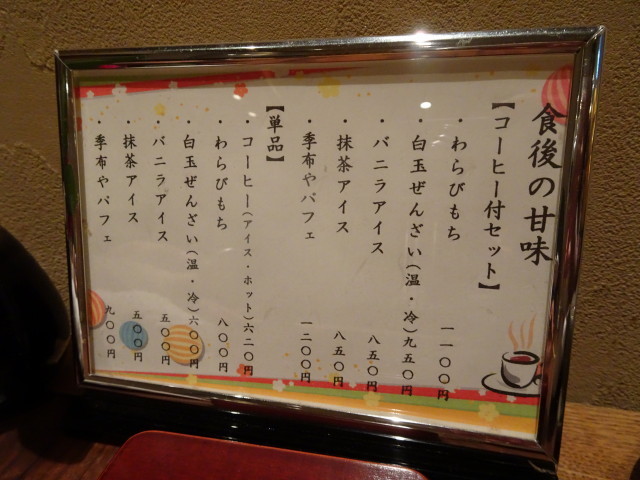 食後の甘味
【コーヒー付セット】
・わらびもち 一一〇〇円
・白玉ぜんざい(温・冷)九五〇円
・バニラアイス 八五〇円
・抹茶アイス 八五〇円
・季布やパフェ 一二〇〇円
【単品】
・コーヒー(アイス・ホット)六二〇円
・わらびもち 八〇〇円
・白玉ぜんざい(温・冷)六〇〇円
・バニラアイス 五〇〇円
・抹茶アイス 五〇〇円
・季布やパフェ 九〇〇円